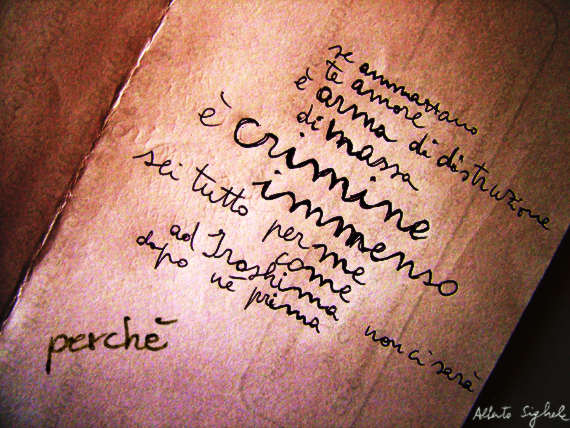 se ammazzano
te amore
è arma di distruzione
di massa
è crimine
immenso
sei tutto per me
come
ad Iroshima non ci sarà
dopo nè prima
perchè
Alberto Sighele